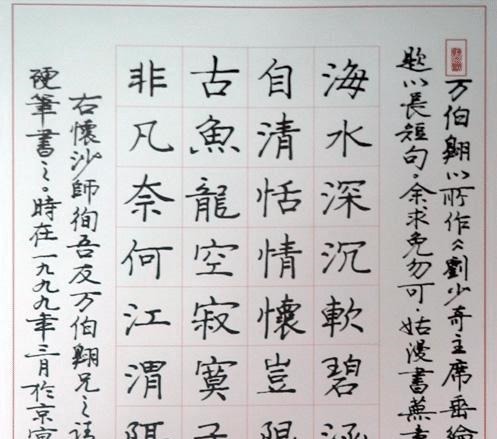 万伯翱以所作《劉少奇主席垂綸
題以長短句。余求免勿可，姑漫書蕪
海水深沉軟碧
自清恬情懷豈
古魚龍空寂寞
非凡奈何江渭
右懷沙師徇吾友万伯翱兄之請
硬筆書之。時在一九九九年三月於京寓